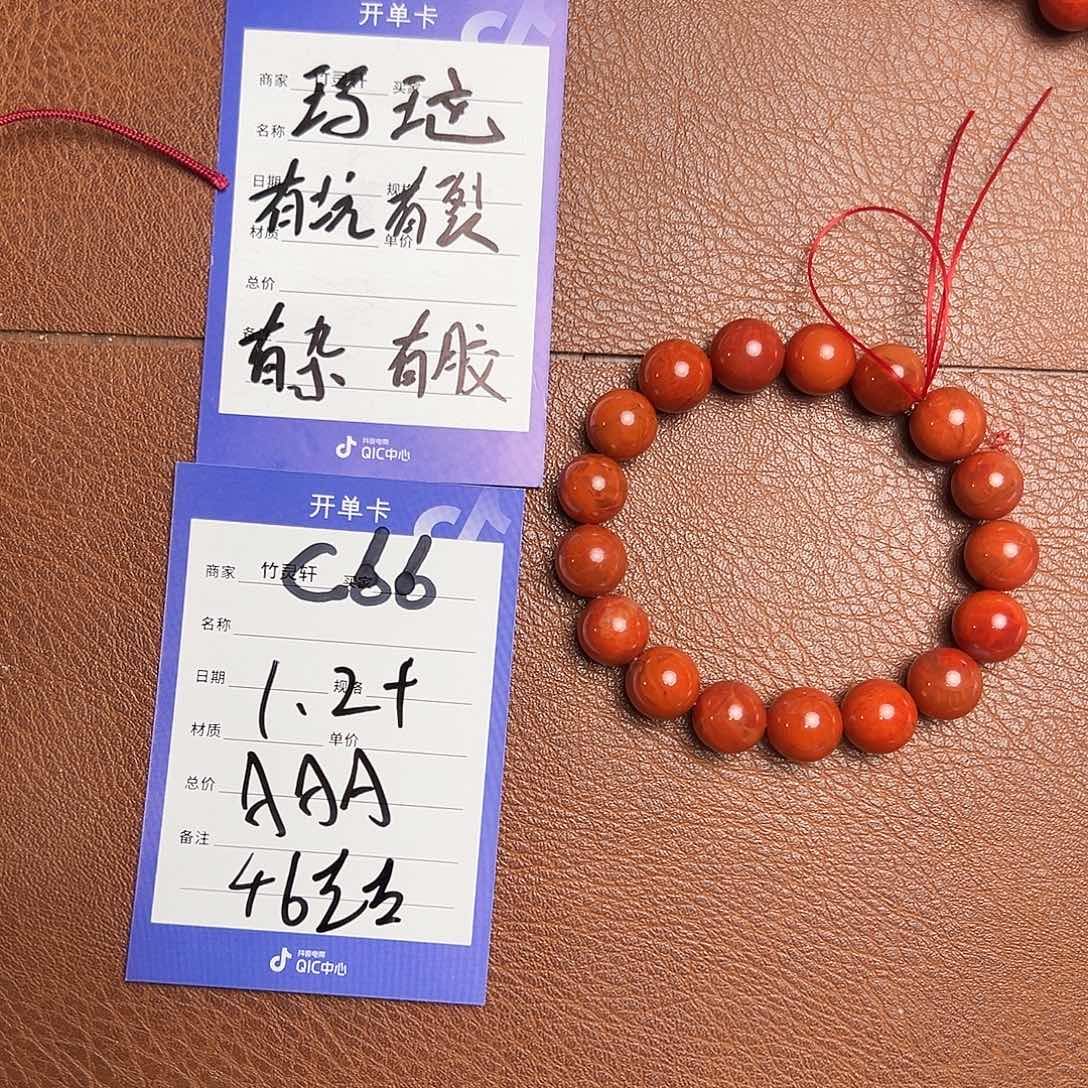 开单卡
商家 竹灵轩 买家
玛瑙
名称
日期 规格
有坑 有裂
材质 单价
总价
有杂 有胶
抖音电商
QIC中心
开单卡
商家 竹灵轩 买家
C66
名称
日期 规格
1.2f
材质 单价
总价
AAA
备注
抖音电商
QIC中心